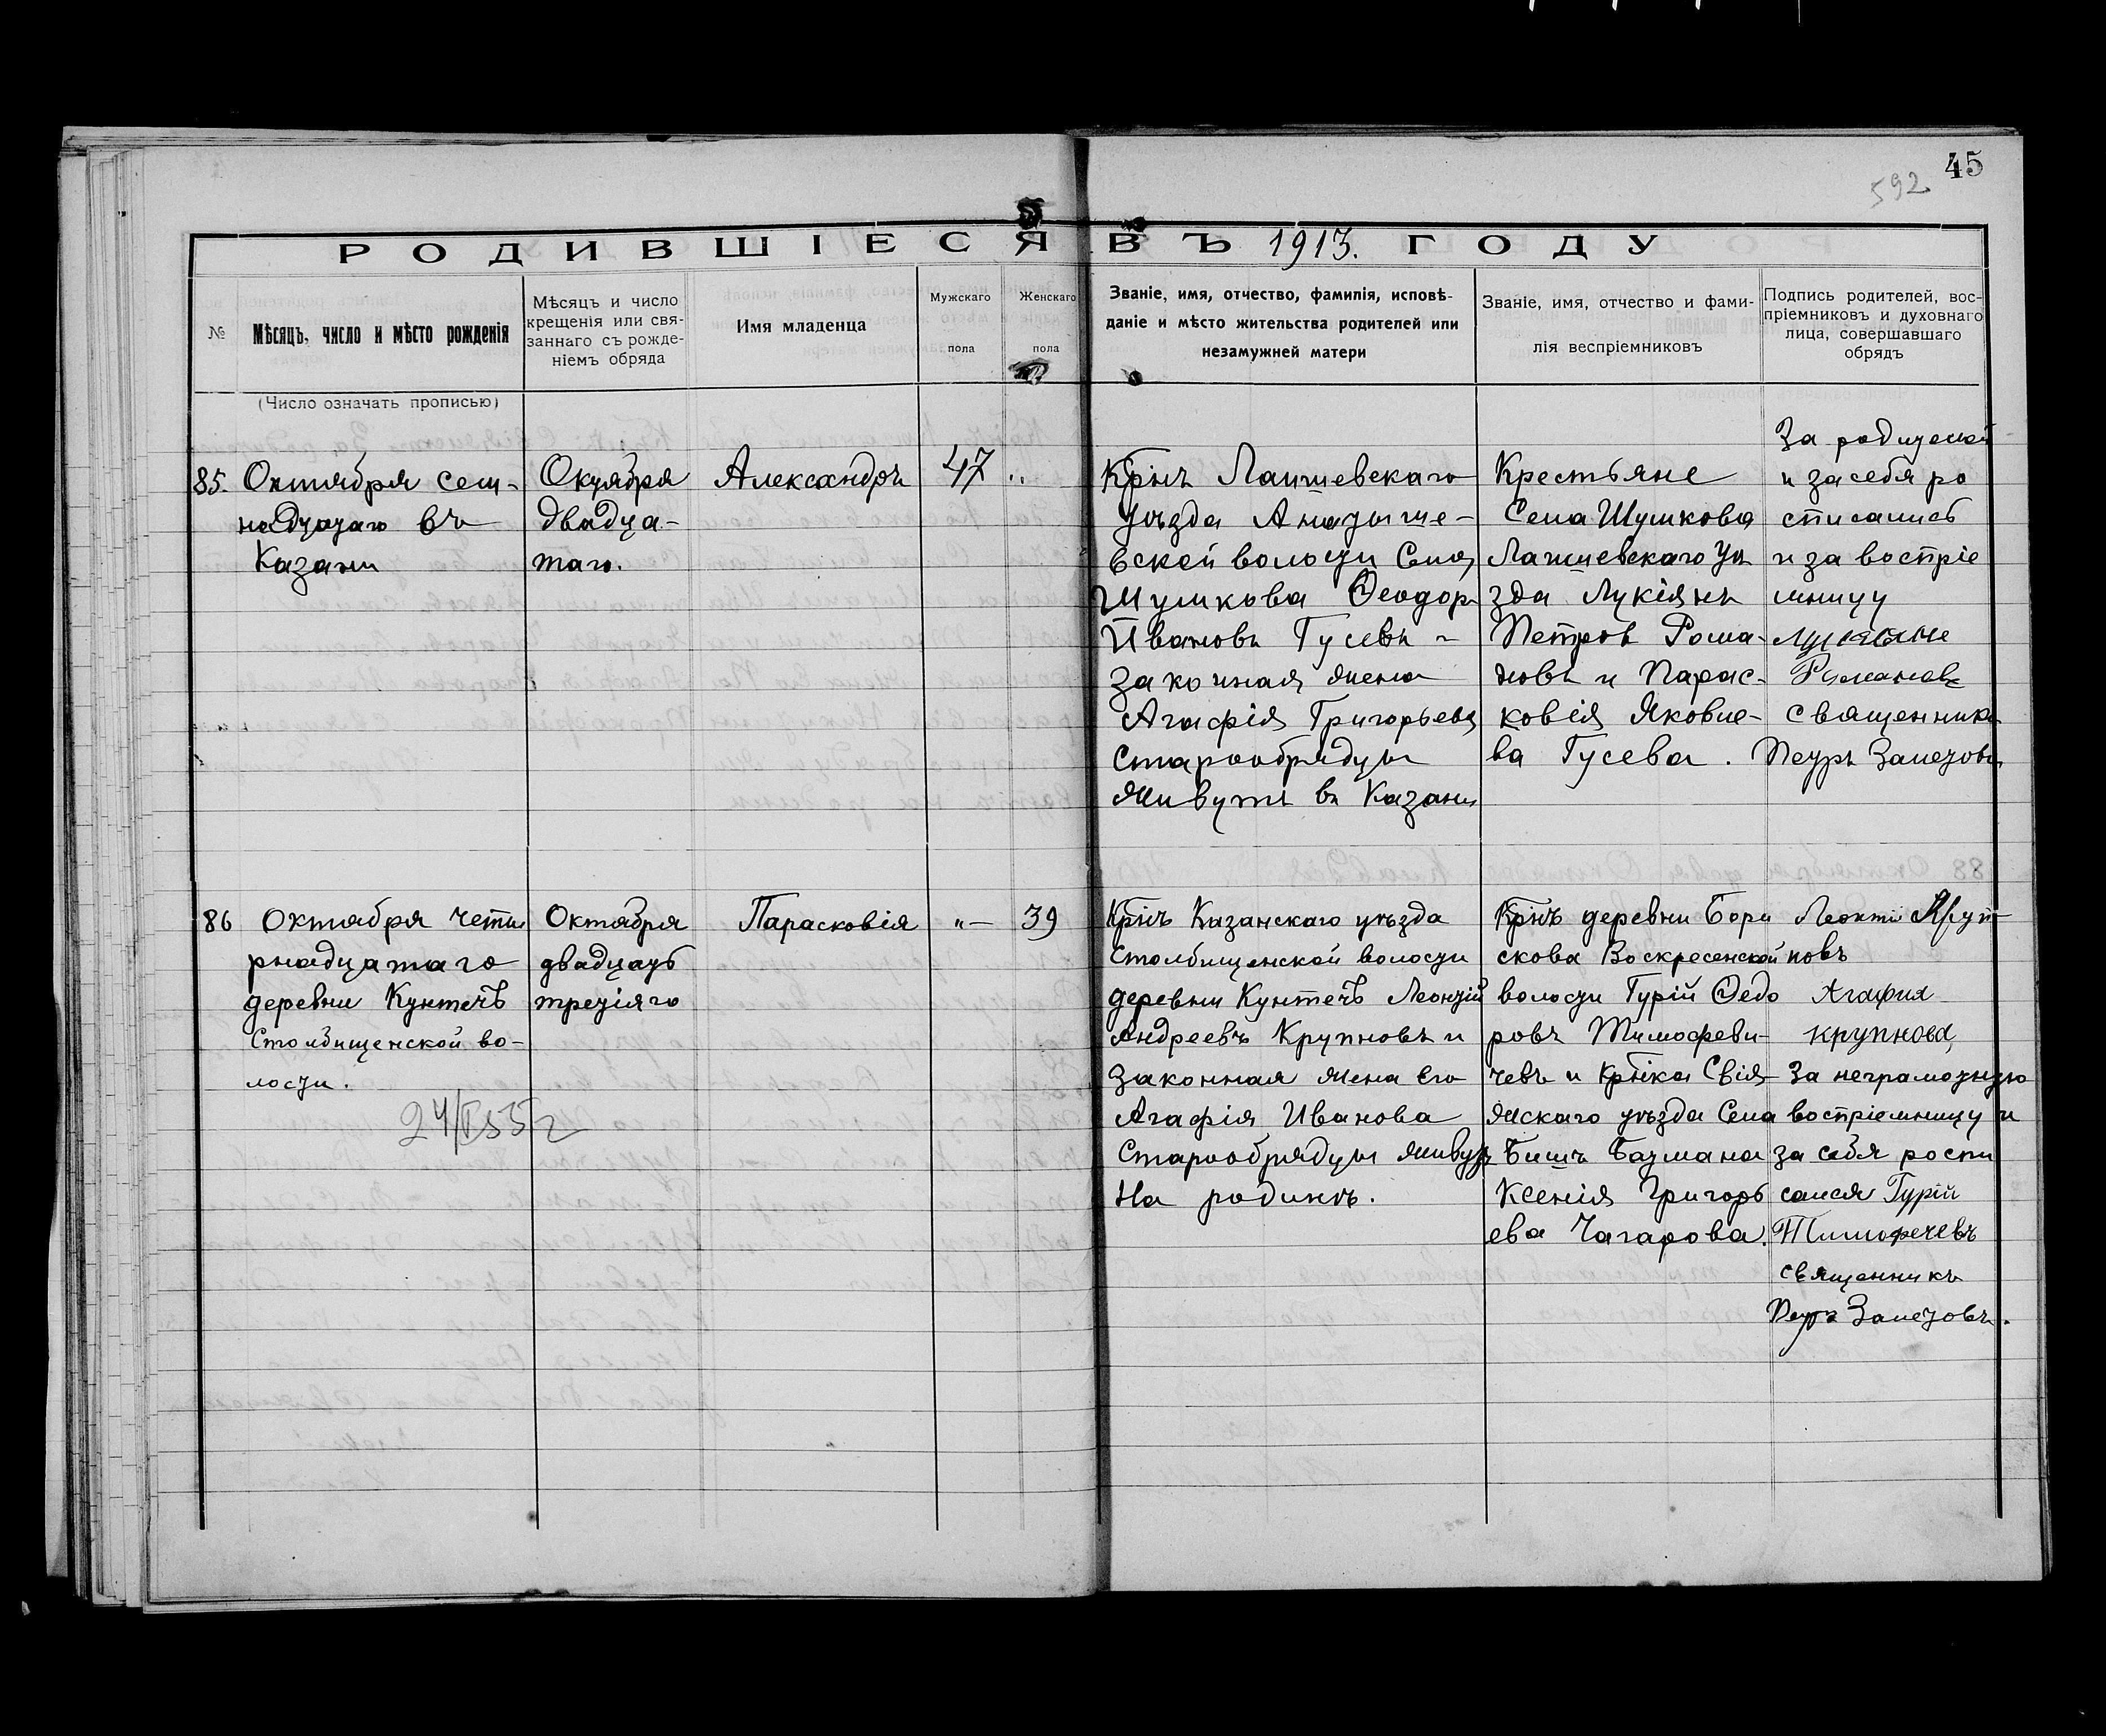 45
592
РОДИВШІЕСЯ ВЪ 1913. ГОДУ
№
Мѣсяцъ, число и мѣсто рожденія
Мѣсяцъ и число
крещенія или свя-
заннаго съ рожде-
ніемъ обряда
Имя младенца
Мужскаго
пола
Женскаго
пола
Званіе, имя, отчество, фамилія, исповѣ-
даніе и мѣсто жительства родителей или
незамужней матери
Званіе, имя, отчество и фами-
лія воспріемниковъ
Подпись родителей, вос-
пріемниковъ и духовнаго
лица, совершавшаго
обрядъ
(Число означать прописью)
85.
Октября сем-
надцатаго въ
Казани
Октября
двадца-
таго.
Александръ
47
Крнъ Лаишевскаго
уѣзда
вской волости Села
Шумкова Ѳеодоръ
Ивановъ Гусевъ и
законная жена
Агафія Григорьева
Старообрядцы
Живутъ въ Казани
Крестьяне
Села Шумкова
Лаишевскаго уѣ
зда Лукіянъ
Петровъ Рома-
новъ и Парас-
ковія Яковле-
ва Гусева.
За родителей
и за себя ро
списались
и за востріе
мницу
Романовъ
Священникъ
Петръ Залетовъ
86
Октября четы
рнадцатаго
деревни Кунтечъ
Столбищенской во-
лости.
24/V 55 г
Октября
двадцать
третіяго
Парасковія
"—
39
Крнъ Казанскаго уѣзда
Столбищенской волости
деревни Кунтечъ Леонтій
Андреевъ Крупновъ и
законная жена его
Агафія Иванова
Старообрядцы живут
на родинѣ.
Крнъ деревни Бори
скова Воскресенской
волости Гурій Ѳедо
ровъ Тимофеви-
чевъ и Крнка Свія-
жскаго уѣзда Села
Бишъ Батмана
Ксенія Григорь
ева Чагарова.
Леонтій Круп
новъ
Агафия
Крупнова,
За неграмотную
востріемницу и
за себя роспи
сался Гурій
Тимофечевъ
священникъ
Петръ Залетовъ.